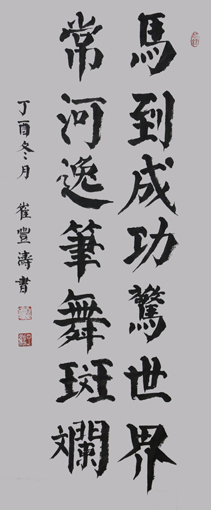 馬到成功驚世界
常河逸筆舞斑斕
丁酉冬月 崔豐濤書